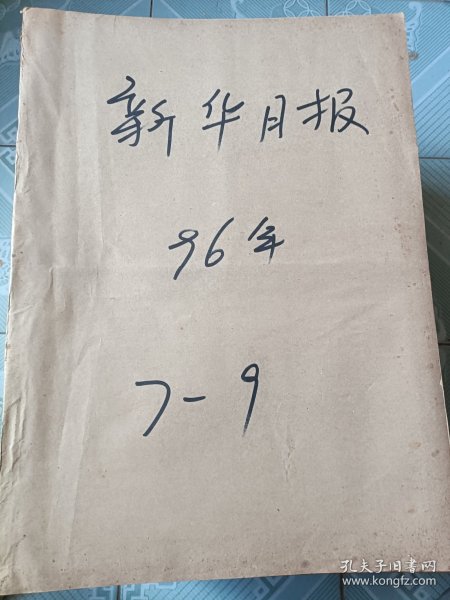 新华月报
96年
7-9
孔夫子旧书网
www.kongfz.com